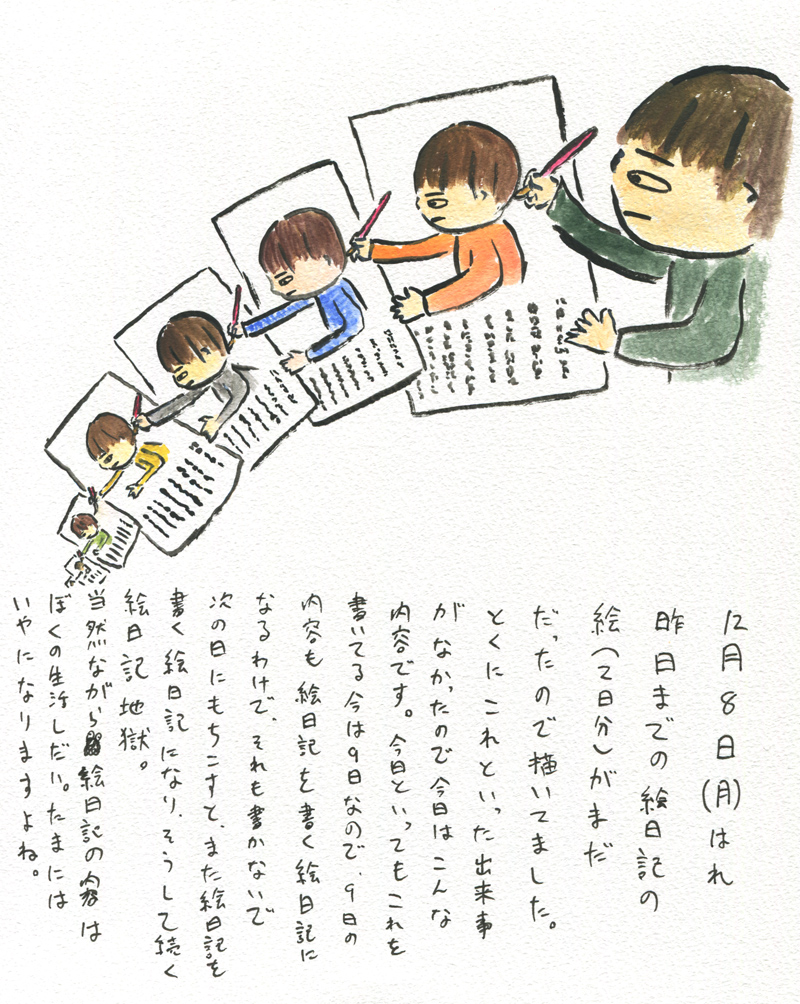 12月8日(月)はれ
昨日までの絵日記の
絵(2日分)がまだ
だったので描いてました。
とくにこれといった出来事
がなかったので今日はこんな
内容です。今日といってもこれを
書いてる今は9日なので、9日の
内容も絵日記を書く絵日記に
なるわけで、それも書かないで
次の日にもちこすと、また絵日記を
書く絵日記になり、そうして続く
絵日記地獄。
当然ながら絵日記の内容は
ぼくの生活しだい。たまには
いやになりますよね。